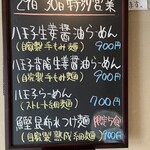 29日 30日 特別営業
八王子生姜醤油らーめん
(自家製手もみ麺) 900円
八王子背脂生姜醤油らーめん
(自家製手もみ麺) 900円
八王子らーめん
(ストレート細麺) 700円
鰹昆布水つけ麺
(自家製熟成細麺) 900円